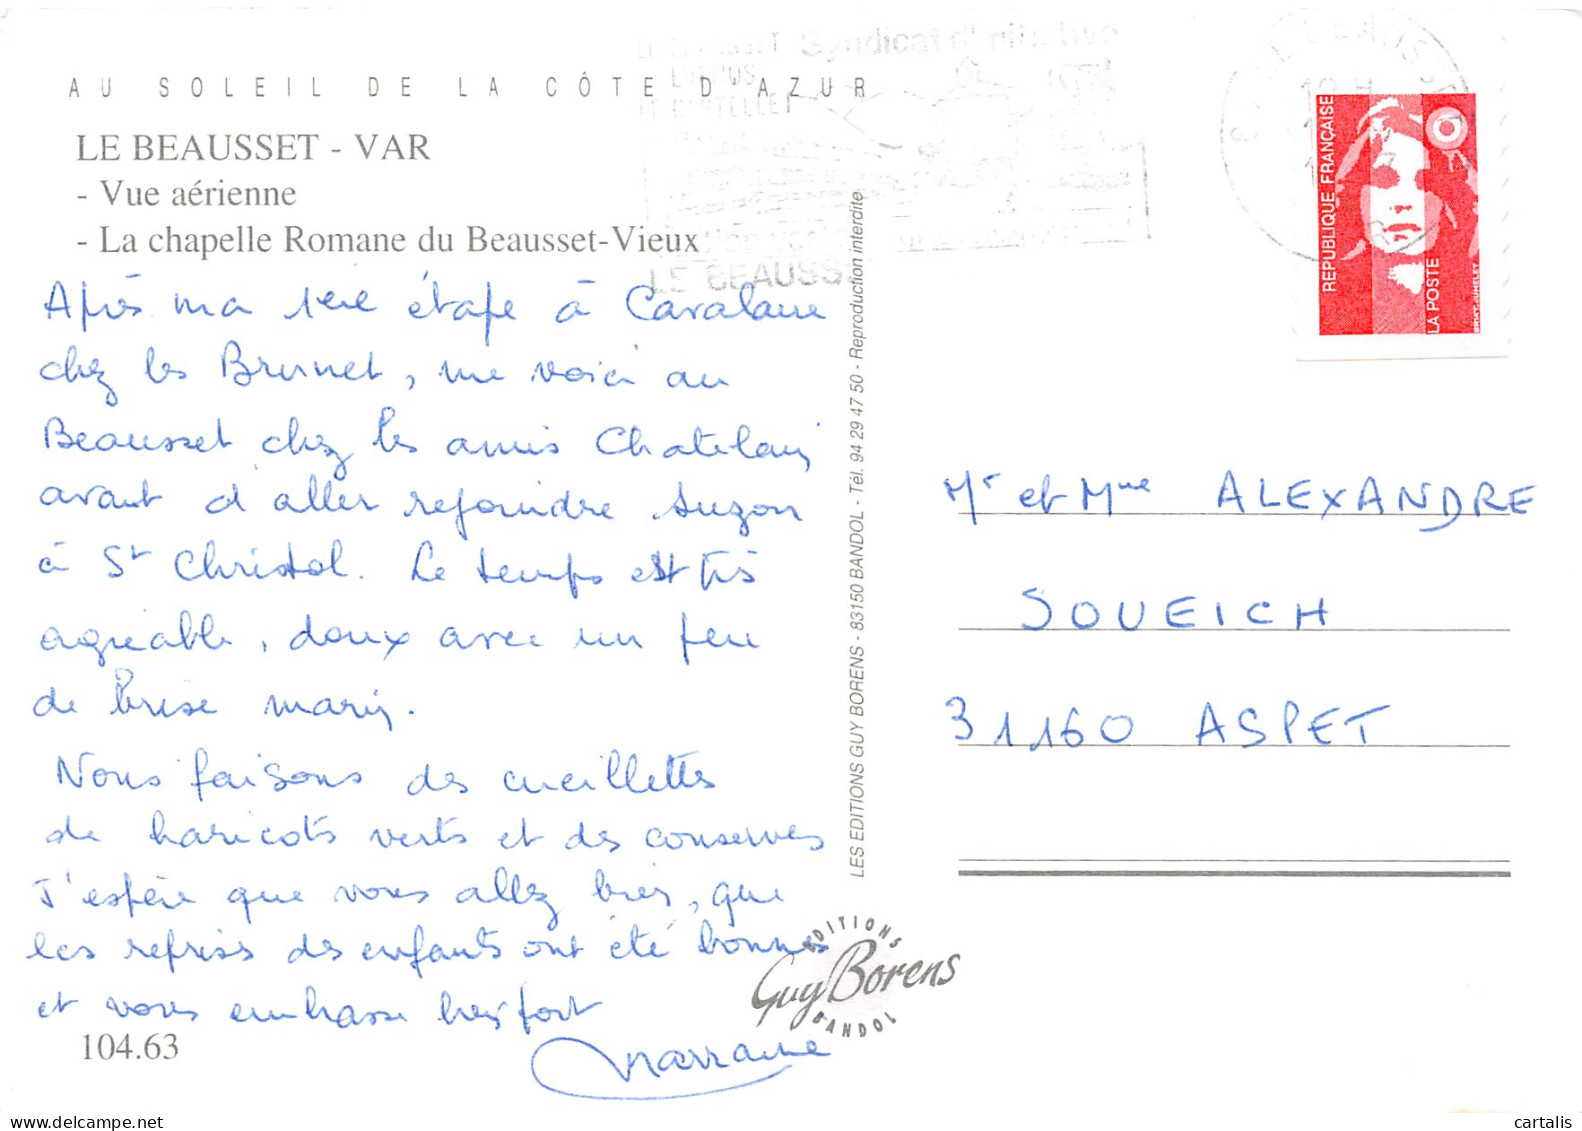 AU SOLEIL DE LA CÔTE D'AZUR
LE BEAUSSET - VAR
- Vue aérienne
- La chapelle Romane du Beausset-Vieux
Syndicat d'Initiative
LE BEAUSSET
Après ma 1ère étape à Cavalaire
chez les Brunet, me voici au
Beausset chez les amis Chatelain
avant d'aller rejoindre Suzon
à St Christol. Le temps est très
agréable, doux avec un peu
de brise marin.
Nous faisons des cueillettes
de haricots verts et des conserves
J'espère que vous allez bien, que
les reprises des enfants ont été bonnes
et vous embrasse bien fort
Marraine
104.63
LES EDITIONS GUY BORENS - 83150 BANDOL - Tél. 94 29 47 50 - Reproduction interdite
EDITIONS
Guy Borens
BANDOL
REPUBLIQUE FRANÇAISE
LA POSTE
Mr et Mme ALEXANDRE
SOUEICH
31160 ASPET
www.delcampe.net
cartalis